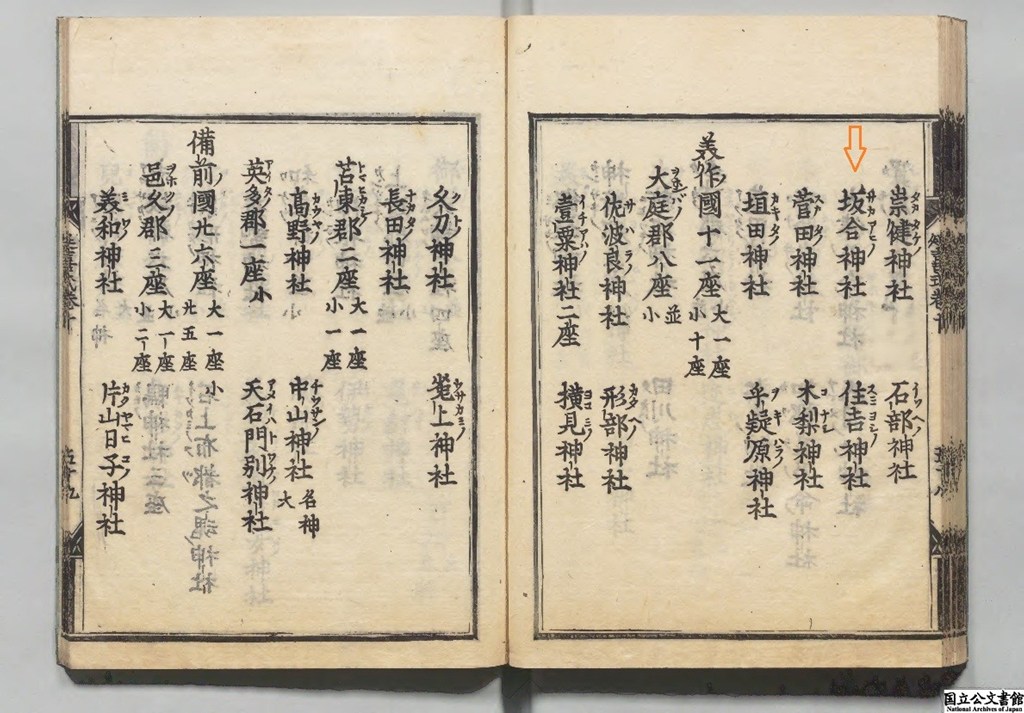 崇健神社 石部神社
坂合神社 住吉神社
菅田神社 木梨神社
垣田神社 乎疑原神社
美作國十一座 大一座 小十座
大庭郡八座 並小
佐波良神社 形部神社
壹粟神社二座 橫見神社
久刀神社 菟上神社
長田神社
苫東郡二座 大一座 小一座
髙野神社 中山神社 名神大
英多郡一座 小 天石門別神社
備前國廿六座 大一座 小廿五座
邑久郡三座 大一座 小二座
美和神社 片山日子神社
国立公文書館
National Archives of Japan